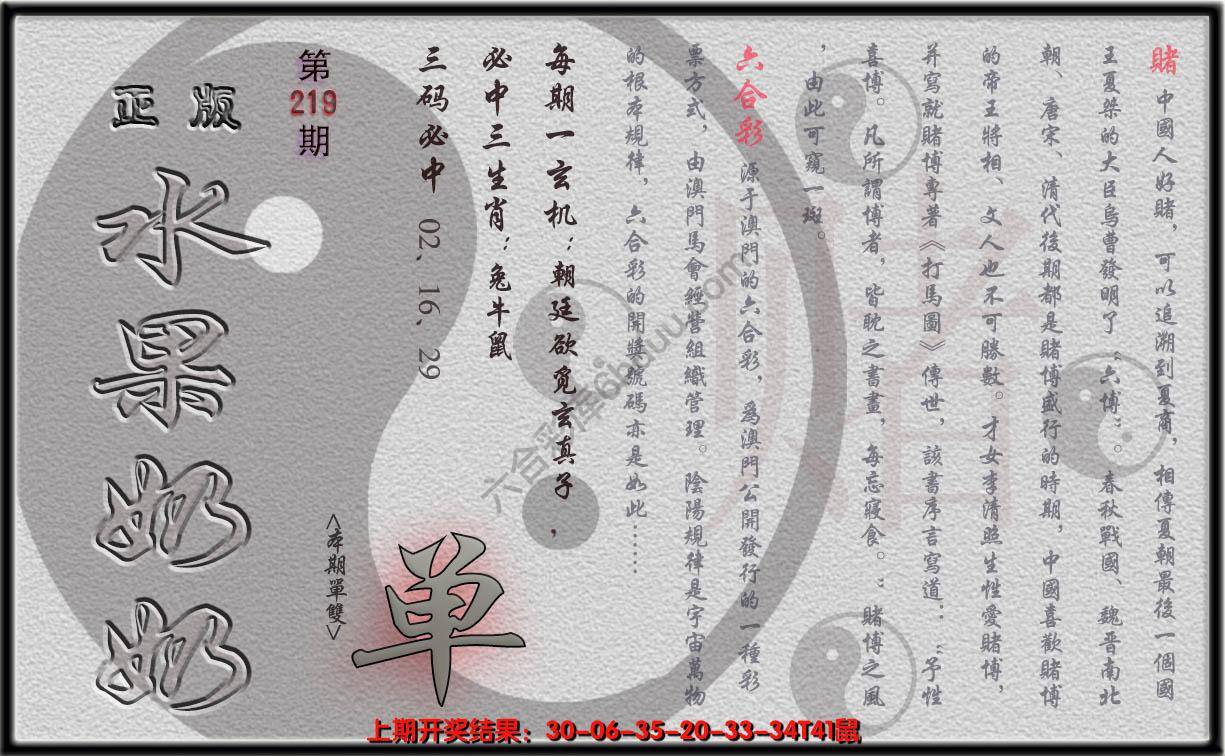 賭 中國人好賭，可以追溯到夏商，相傳夏朝最後一個國
王夏桀的大臣烏曹發明了“六博”。春秋戰國、魏晋南北
朝、唐宋、清代後期都是賭博盛行的時期，中國喜歡賭博
的帝王將相、文人也不可勝數。才女李清照生性愛賭博，
并寫就賭博專著《打馬圖》傳世，該書序言寫道：“予性
喜博。凡所謂博者，皆耽之書畫，每忘寢食。”賭博之風
，由此可窺一斑。
六合彩 源于澳門的六合彩，爲澳門公開發行的一種彩
票方式，由澳門馬會經營組織管理。陰陽規律是宇宙萬物
的根本規律，六合彩的開獎號碼亦是如此……
每期一玄机：朝廷欲觅玄真子，
必中三生肖：兔牛鼠
三码必中 02、16、29
第219期
正版
水果奶奶
<本期單雙>
单
賭
六合彩库6huuu.com
上期开奖结果：30-06-35-20-33-34T41鼠